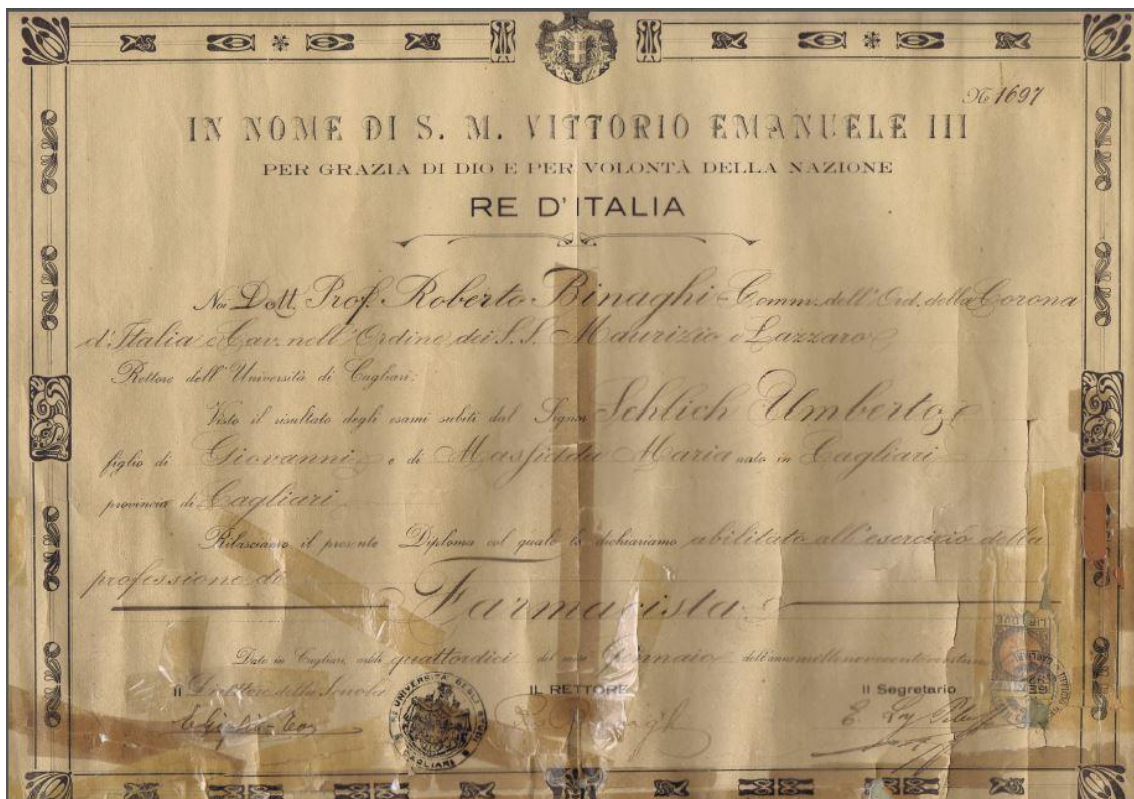 No 1697
IN NOME DI S. M. VITTORIO EMANUELE III
PER GRAZIA DI DIO E PER VOLONTÀ DELLA NAZIONE
RE D'ITALIA
Noi Dott. Prof. Roberto Binaghi Comm. dell'Ord. della Corona
d'Italia e Cav. nell'Ordine dei S.S. Maurizio e Lazzaro
Rettore dell'Università di Cagliari:
Visto il risultato degli esami subiti dal Signor Schlich Umberto
figlio di Giovanni e di Masfiddu Maria nato in Cagliari
provincia di Cagliari
Rilasciamo il presente Diploma col quale lo dichiariamo abilitato all'esercizio della
professione di
Farmacista
Dato in Cagliari, addì quattordici del mese Gennaio dell'anno
Il Direttore della Scuola IL RETTORE Il Segretario
UNIVERSITÀ DEGLI STUDI
CAGLIARI